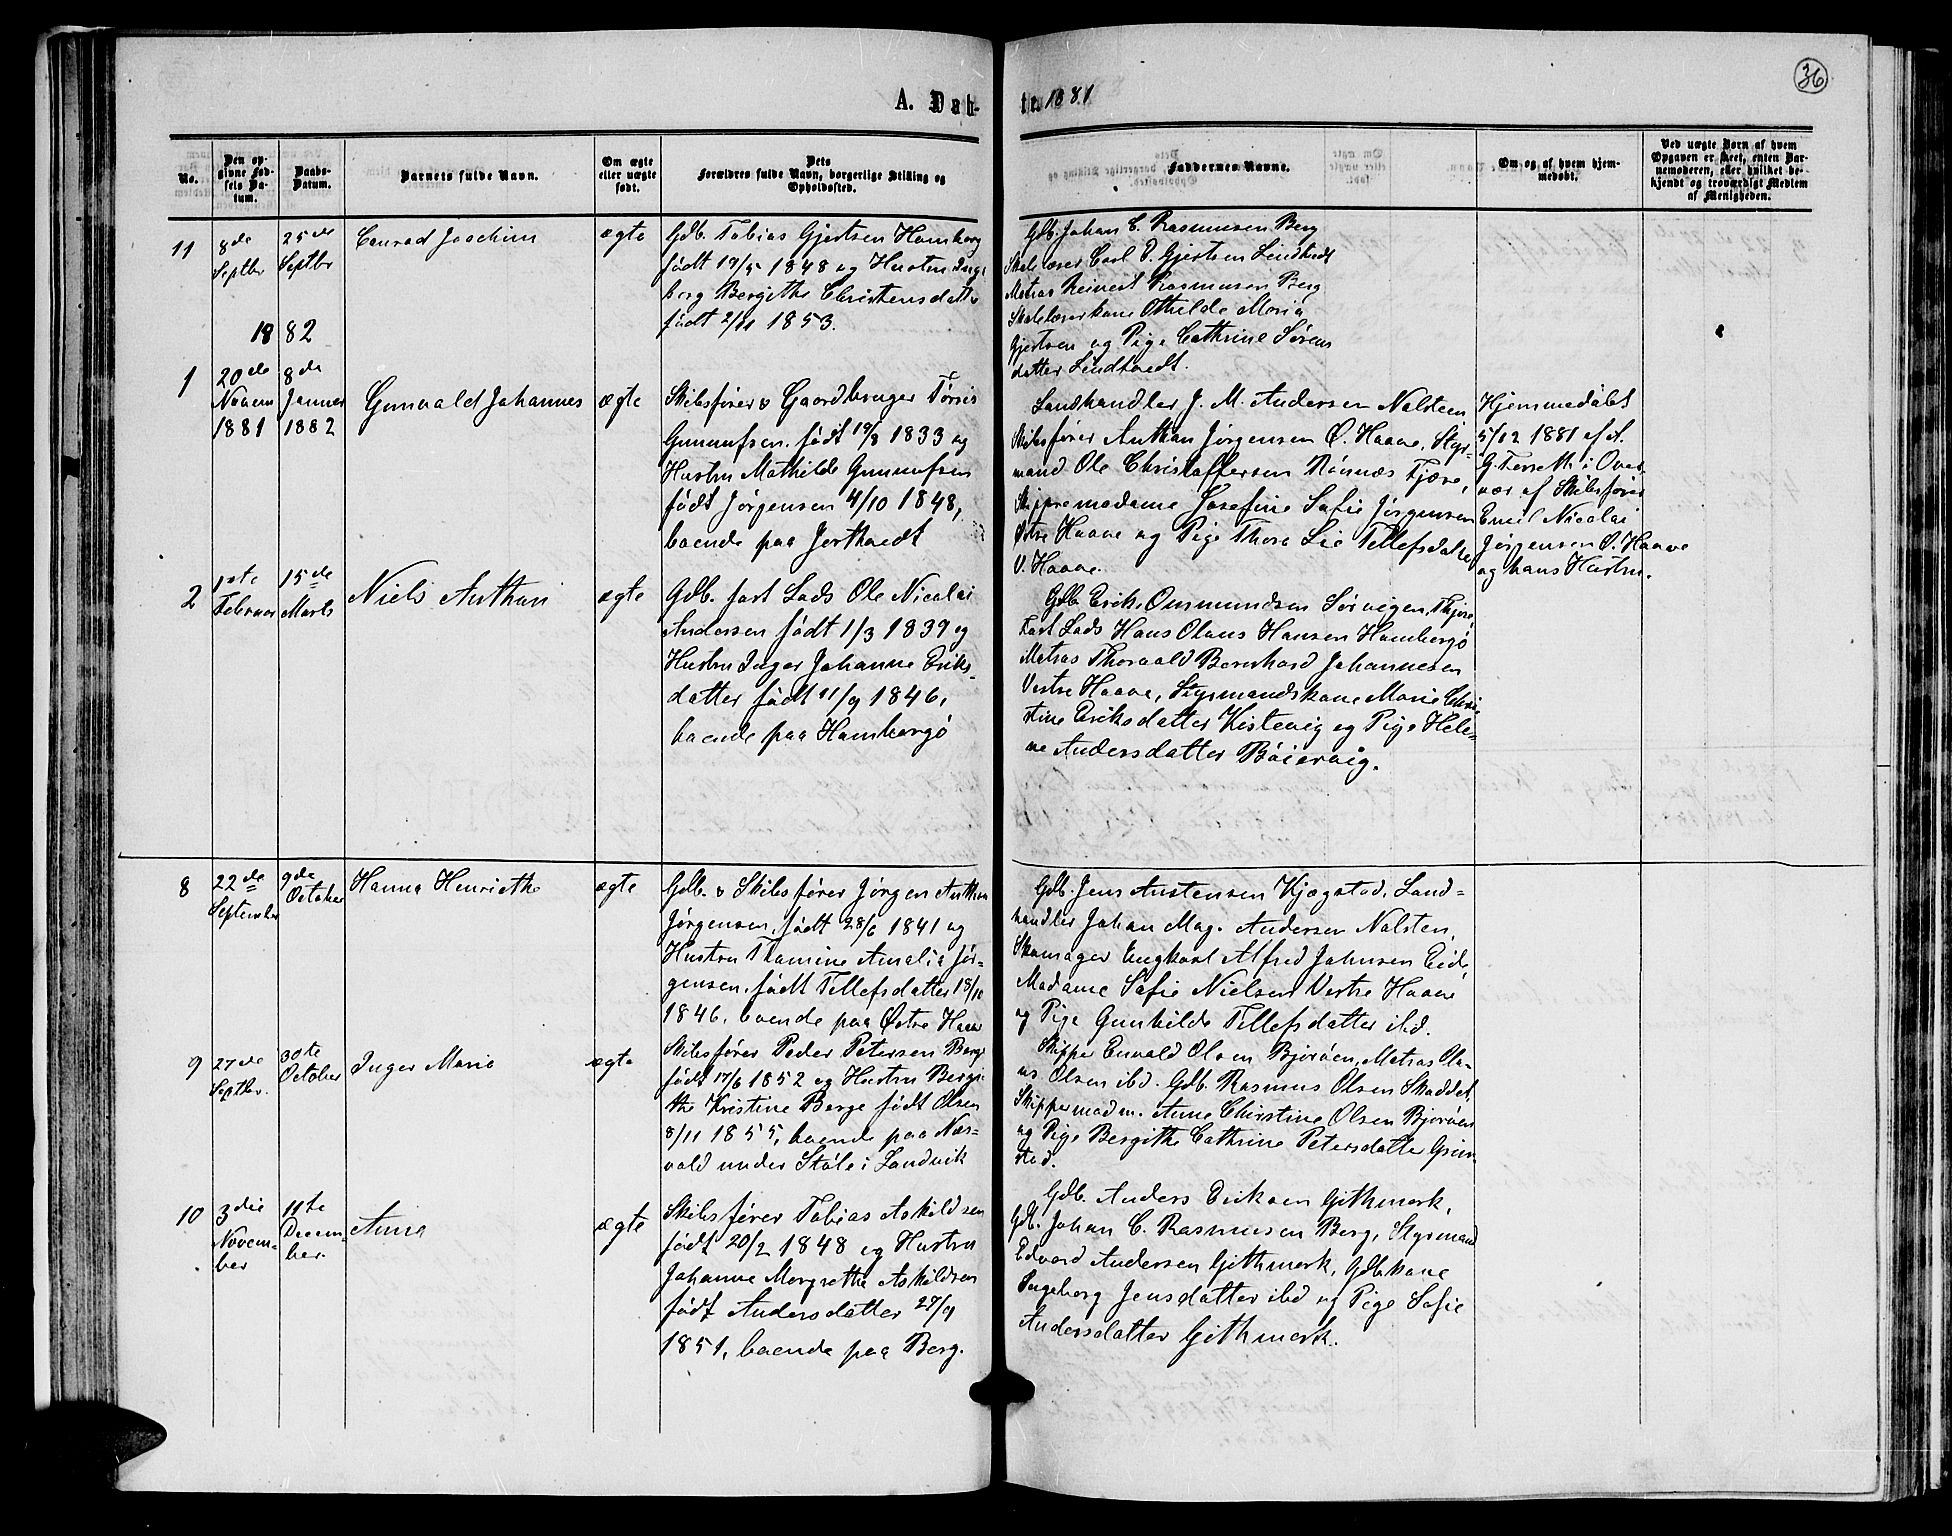 36
A. Dåb-
te. 1881
No.
Den op-
givne Fød-
sels Da-
tum.
Daabs-
Datum.
Barnets fulde Navn.
Om ægte
eller uægte
født.
Dets
Forældres fulde Navn, borgerlige Stilling og
Opholdssted.
Faddernes Navne.
Om og af hvem hjem-
medøbt.
Ved uægte Børn af hvem
Opgaven er skeet, enten Bar-
nemoderen, eller hvilket be-
kjendt og troværdigt Medlem
af Menigheden.
11
8de
Septbr
25de
Septbr
Conrad Joachim
ægte
Gdb. Tobias Gjertsen Hamborg
født 19/5 1848 og Hustru Inge
borg Bergithe Christensdatter
født 2/11 1853.
Gdb. Johan C. Rasmussen Berg
Skolelærer Carl O. Gjertsen Lindtvedt
Matros Reinert Rasmussen Berg
Skolelærerkone Othilde Maria
Gjertsen og Pige Cathrine Sørens
datter Lindtvedt.
1882
1
20de
Novem
1881
8de
Januar
1882
Gunvald Johannes
ægte
Skibsfører & Gaardbruger Tørris
Gunnufsen, født 19/8 1833 og
Hustru Mathilde Gunnufsen
født Jørgensen 4/10 1848,
boende paa Jortvedt
Landhandler J. M. Andersen Nalsteen
Skibsfører Anthan Jørgensen Ø. Haave, Styr-
mand Ole Christoffersen Rønnes Fjære,
Skippermadame Josefine Sofie Jørgensen
Østre Haave og Pige Thora Lie Tellefsdatter
V. Haave.
Hjemmedøbt
5/12 1881 af A.
G. Terreth i Over
vær af Skibsfører
Emil Nicolai
Jørgensen Ø. Haave
og hans Hustru.
2
1ste
Februar
15de
Marts
Niels Anthon
ægte
Gdb. fast Lods Ole Nicolai
Andersen født 1/3 1839 og
Hustru Inger Johanne Eriks-
datter født 11/9 1846,
boende paa Hamborgø
Gdb. Erik Ommundsen Sørvigen, Fhjøre,
Fast Lods Hans Olaus Hansen Hamborgø
Matros Thorvald Bernhard Johannesen
Vestre Haave, Styrmandskone Marie Chri-
stine Eriksdatter Kistevig og Pige Hele-
ne Andersdatter Bøiervig.
8
22de
September
9de
October
Hanna Henriethe
ægte
Gdb. & Skibsfører Jørgen Anthon
Jørgensen, født 28/6 1841 og
Hustru Thamine Amalia Jør-
gensen, født Tellefsdatter 18/10
1846, boende paa Østre Haave
Gdb. Jens Austensen Kjægstad, Land-
handler Johan Mag. Andersen Nalsten,
Skomager Engkart Alfred Johnsen Eid,
Madame Sofie Nielsen Vestre Haave
og Pige Gunhilde Tellefsdatter ibd.
9
27de
Septbr.
30te
October
Inger Marie
ægte
Skibsfører Peder Petersen Berge
født 17/6 1852 og Hustru Bergi-
the Kristine Berge født Olsen
8/11 1855, boende paa Næs-
vold under Støle i Landvik
Skipper Envald Olsen Bjorøen, Matros Ola-
us Olsen ibd. Gdb. Rasmus Olsen Skaddet
Skippermadm. Anne Christine Olsen Bjorøen
og Pige Bergithe Cathrine Petersdatter Grim-
stad.
10
3die
Novem-
ber
11te
Decem-
ber.
Anna
ægte
Skibsfører Tobias Askildsen
født 20/2 1848 og Hustru
Johanne Margrethe Askildsen
født Andersdatter 27/9
1851, boende paa Berg.
Gdb. Anders Eriksen Githmark,
Gdb. Johan C. Rasmussen Berg, Styrmand
Edvard Andersen Githmark, Gdbkone
Ingeborg Jensdatter ibd og Pige Sofie
Andersdatter Githmark.